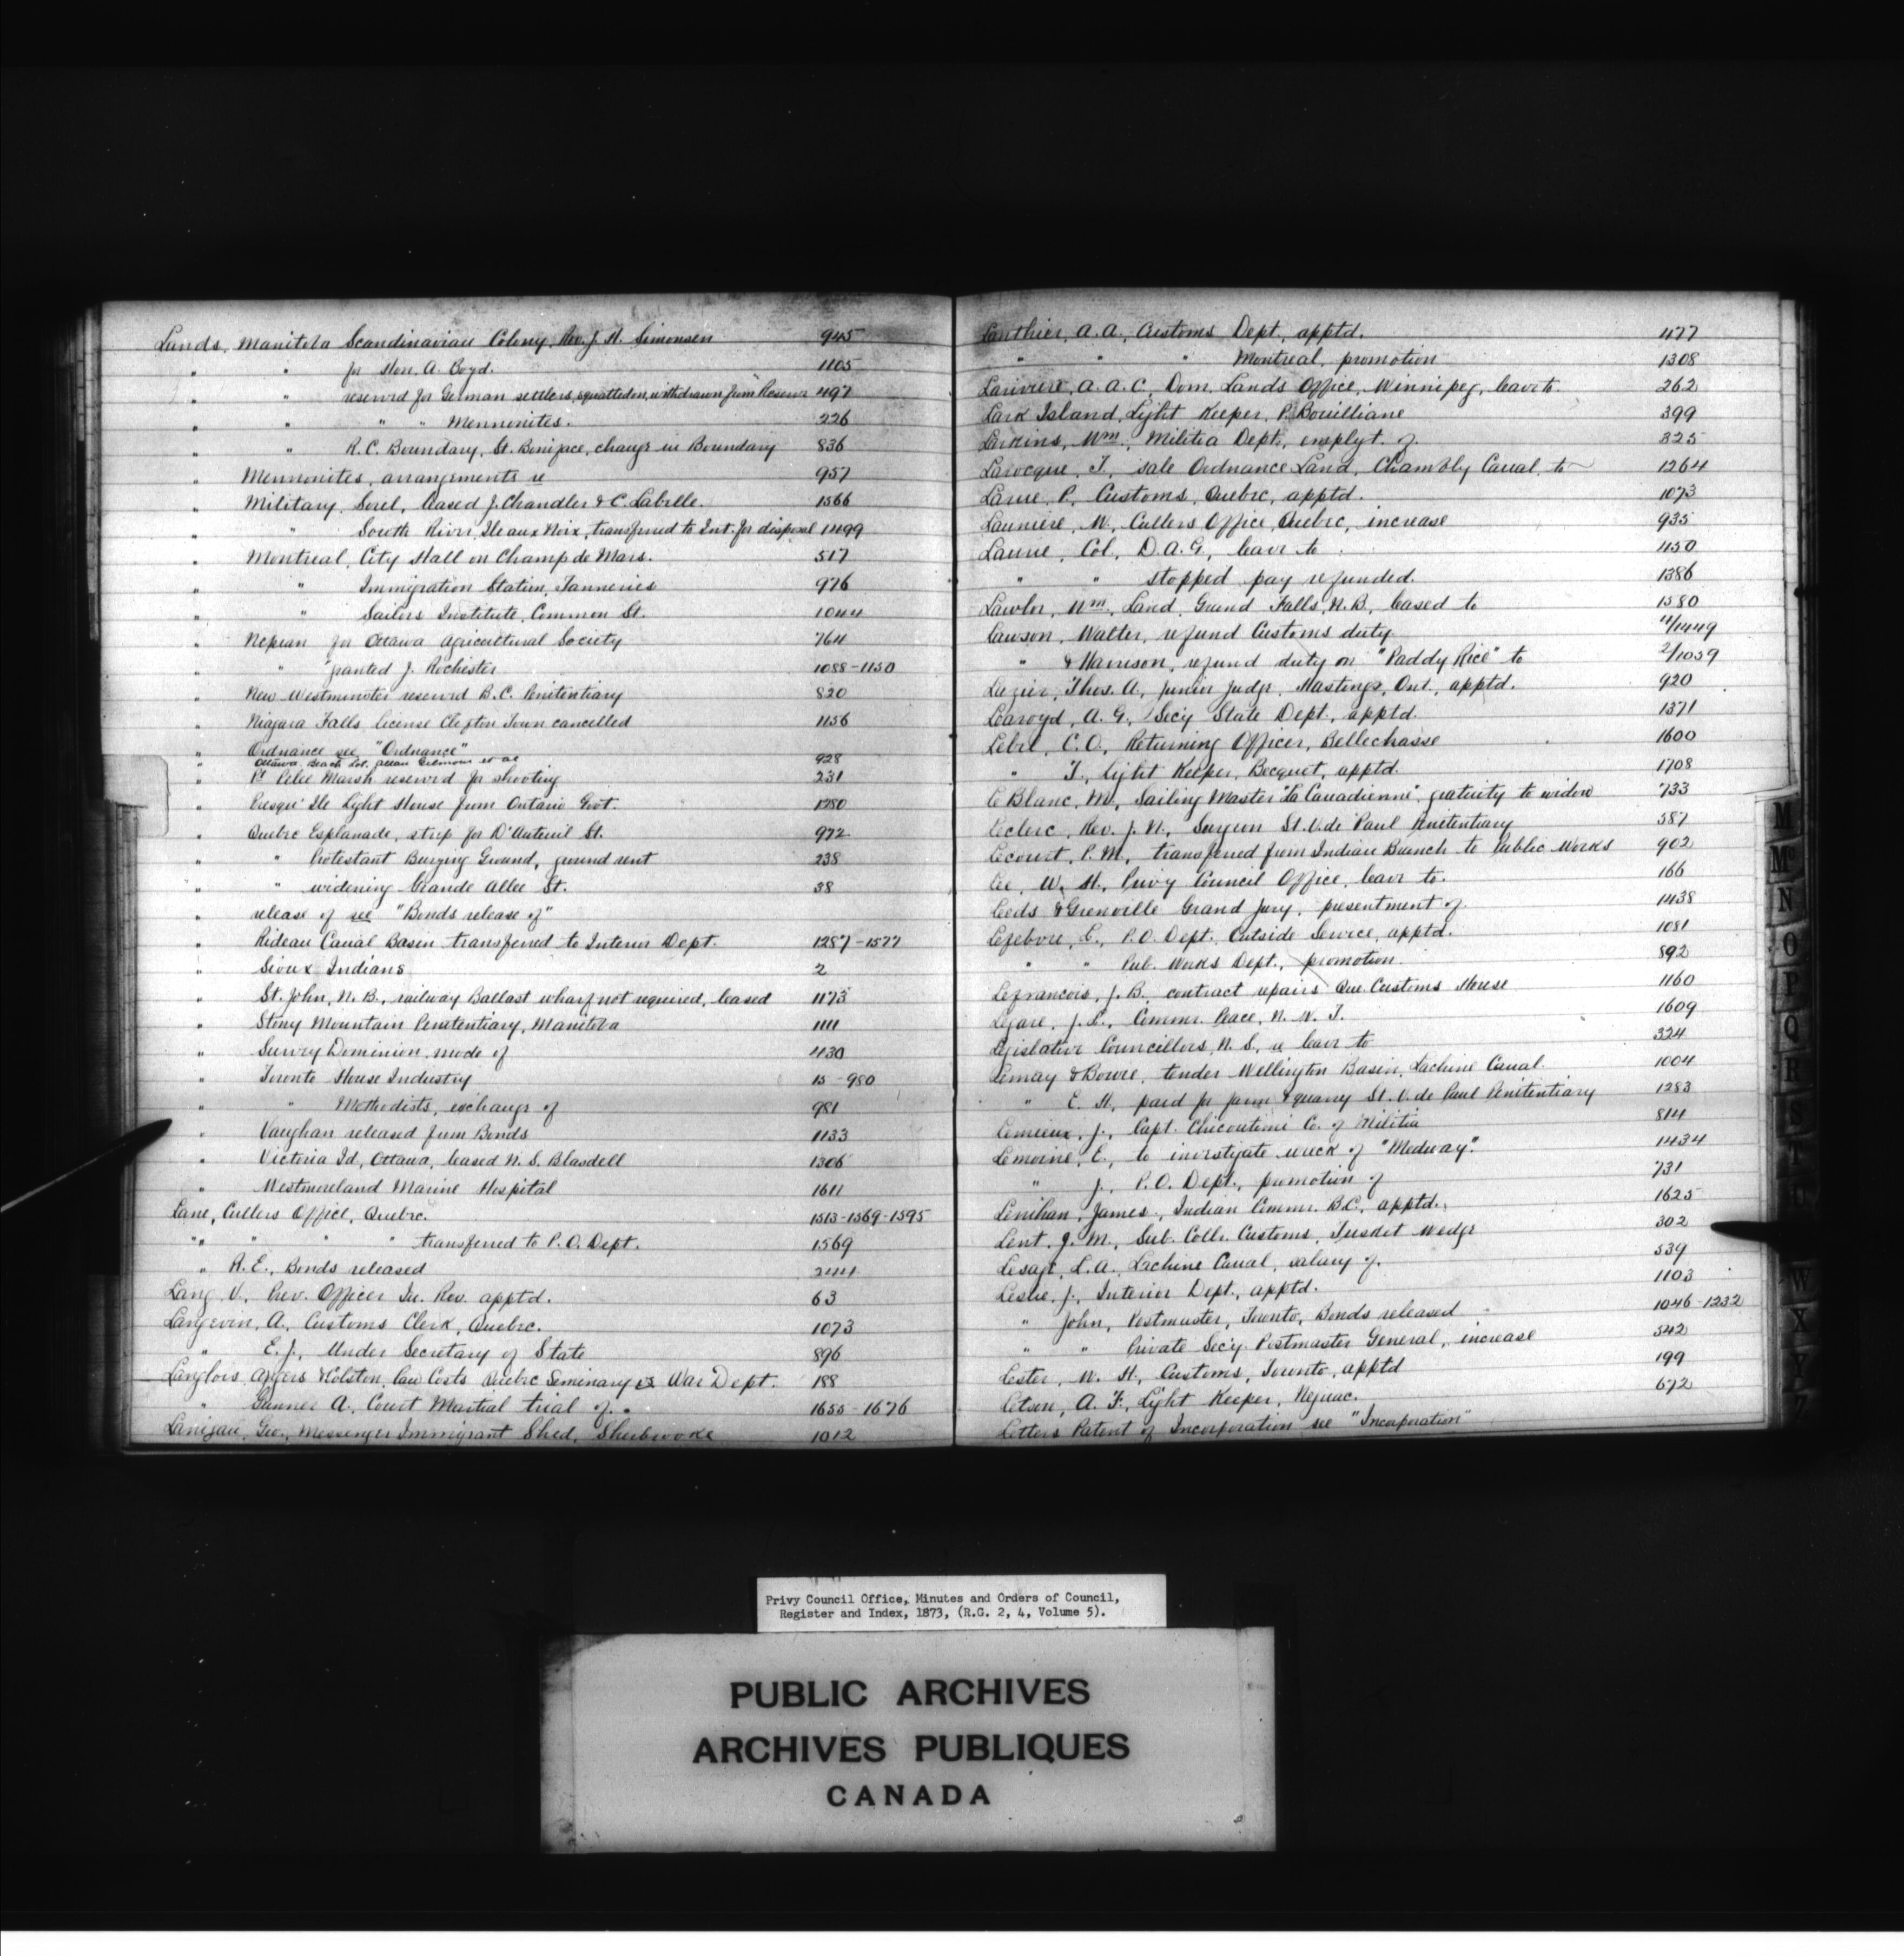 Lands, Manitoba Scandinavian Colony, Rev. J. H. Simonsen 945
" " for Hon. A. Boyd. 1105
" " reserved for German settlers, squatted on, withdrawn from Reserve 497
" " " " Mennonites. 226
" " R.C. Boundary, St. Boniface, change in Boundary 836
" Mennonites, arrangements re 957
" Military, Sorel, leased J. Chandler & C. Labelle. 1566
" " South River, Ile aux Noix, transferred to Int. for disposal 1499
" Montreal, City Hall on Champ de Mars. 517
" " Immigration Station, Tanneries 976
" " Sailors Institute, Common St. 1044
" Nepean for Ottawa Agricultural Society 764
" " granted J. Rochester 1088-1150
" New Westminster reserved B.C. Penitentiary 820
" Niagara Falls license Clifton Town cancelled 1156
" Ordnance see "Ordnance"
" Ottawa, Beach Lot, Allan Gilmour et al 928
" Pt Pelee Marsh reserved for shooting 231
" Presqu'Ile Light House from Ontario Govt. 1280
" Quebec Esplanade, strip for D'Auteuil St. 972
" " Protestant Burying Ground, ground rent 238
" " widening Grande Allee St. 38
" release of see "Bonds release of"
" Rideau Canal Basin transferred to Interior Dept. 1287-1577
" Sioux Indians 2
" St. John, N.B., railway Ballast wharf not required, leased 1173
" Stony Mountain Penitentiary, Manitoba 1111
" Survey Dominion, mode of 430
" Toronto House Industry 15-980
" " Methodists, exchange of 981
" Vaughan released from Bonds 1133
" Victoria Id, Ottawa, leased N. S. Blasdell 1306
" Westmoreland Marine Hospital 1611
Lane, Cullers Office, Quebec. 1513-1569-1595
" " " " transferred to P.O. Dept. 1569
" R. E., Bonds released 244
Lang V., Prev. Officer In. Rev. apptd. 63
Langevin, A., Customs Clerk, Quebec. 1073
" E. J., Under Secretary of State 896
Langlois Angers & Colston, law Costs Quebec Seminary vs War Dept. 188
" Gunner A., Court Martial trial of 1655-1676
Lanigan, Geo., Messenger Immigrant Shed, Sherbrooke 1012
Lanthier, A. A., Customs Dept, apptd. 477
" " " Montreal, promotion 1308
Lariviere, A. A. C., Dom. Lands Office, Winnipeg, leave to. 262
Lark Island, Light Keeper, P. Bouilliane 399
Larkins, Wm., Militia Dept., emplyt. of. 325
Larocque, T., sale Ordnance Land, Chambly Canal, to 1264
Larue, P., Customs, Quebec, apptd. 1073
Launiere, W., Cullers Office, Quebec, increase 935
Laurie, Col., D.A.G., leave to 450
" " stopped pay refunded. 1386
Lawlor, Wm., Land, Grand Falls, N.B., leased to 1580
Lawson, Walter, refund Customs duty. 11/1449
" & Harrison, refund duty on "Paddy Rice" to 2/1059
Lazier, Thos. A., Junior Judge, Hastings, Ont., apptd. 920
Learoyd, A. G., Secy State Dept., apptd. 1371
Lebel, C. O., Returning Officer, Bellechasse 1600
" T., Light Keeper, Becquet, apptd. 1708
Le Blanc, M., Sailing Master "La Canadienne", gratuity to widow 733
Leclerc, Rev. J. N., Surgeon St. V. de Paul Penitentiary 587
Lecourt, P. M., transferred from Indian Branch to Public Works 902
Lee, W. H., Privy Council Office, leave to. 166
Leeds & Grenville Grand Jury, presentment of. 1438
Lefebvre, C., P.O. Dept., Outside Service, apptd. 1081
" " Pub. Works Dept., promotion. 892
Lefrancois, J. B., contract repairs Que Customs House 1160
Legare, J. L., Commr. Peace, N. W. T. 1609
Legislative Councillors, N.S., re leave to 324
Lemay & Bowie, tender Wellington Basin, Lachine Canal. 1004
" E. H., paid for farm & quarry St. V. de Paul Penitentiary 1283
Lemieux, J., Capt. Chicoutimi Co. of Militia 814
Lemoine, E., to investigate wreck of "Medway". 1434
" J., P.O. Dept., promotion of 731
Lenihan, James, Indian Commr. B.C., apptd. 1625
Lent, J. M., Sub. Collr. Customs, Tusket Wedge 302
Lesage, L. A., Lachine Canal, salary of. 539
Leslie, J., Interior Dept., apptd. 1103
" John, Postmaster, Toronto, Bonds released 1046-1232
" " Private Sec'y Postmaster General, increase 542
Lester, W. H., Customs, Toronto, apptd 199
Letson, A. F., Light Keeper, Neguac. 672
Letters Patent of Incorporation see "Incorporation"
M
Mc
N
O
P
Q
R
S
T
U
W
X
Y
Z
Privy Council Office, Minutes and Orders of Council,
Register and Index, 1873, (R.G. 2, 4, Volume 5).
PUBLIC ARCHIVES
ARCHIVES PUBLIQUES
CANADA